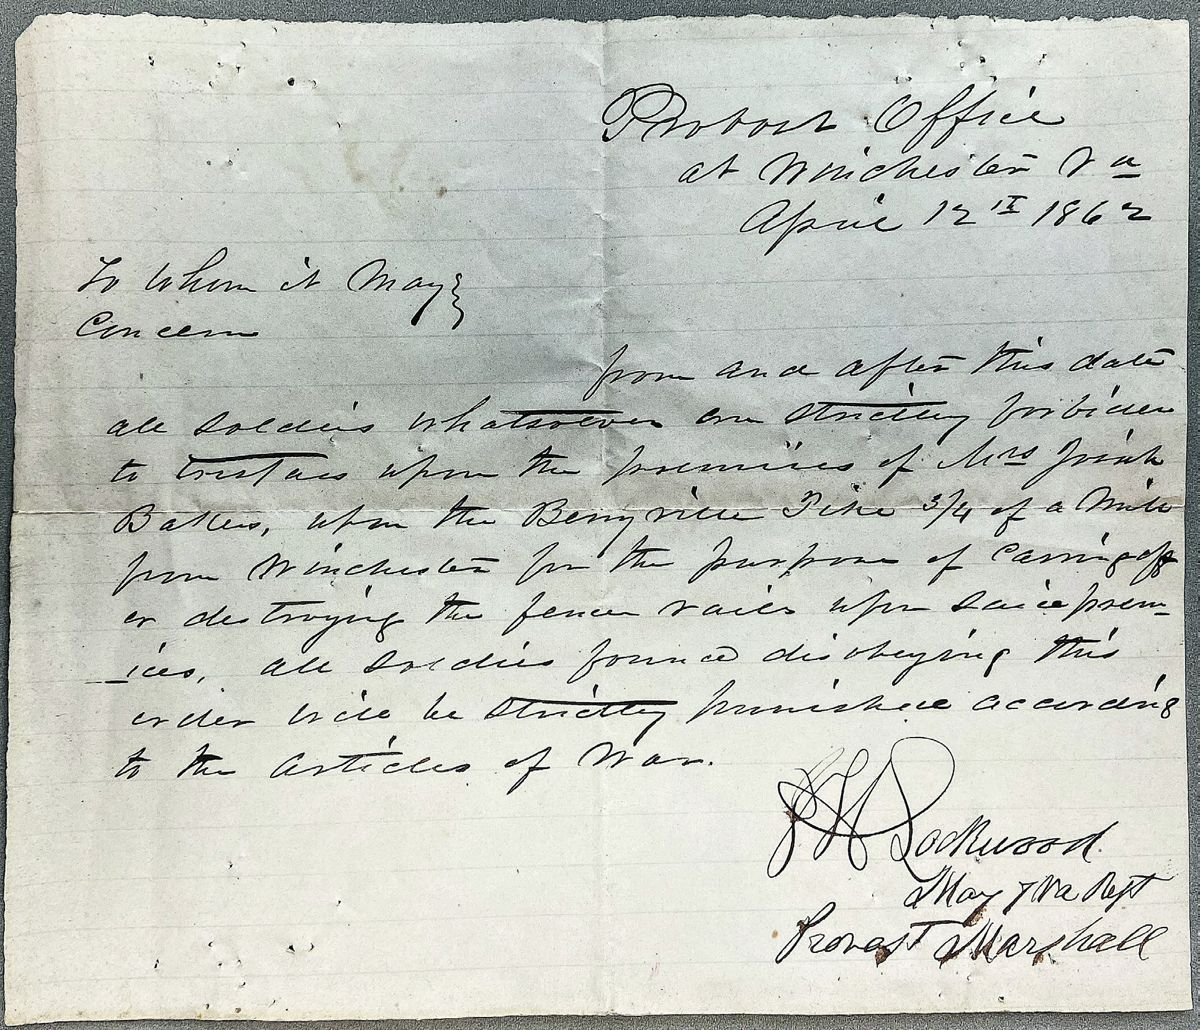 Provost Office
at Winchester Va
April 12th 1862
To Whom it May
Concern
from and after this date
all soldiers whatsoever are strictly forbiden
to trespass upon the premises of Mrs Josiah
Bakers, upon the Berryville Pike 3/4 of a Mile
from Winchester for the purpose of Carring off
or destroying the fence rails upon said prem-
-ices, all soldies found disobeying this
order will be strictly punished according
to the Articles of War.
J H Lockwood
Maj 7 Va Regt
Provost Marshall